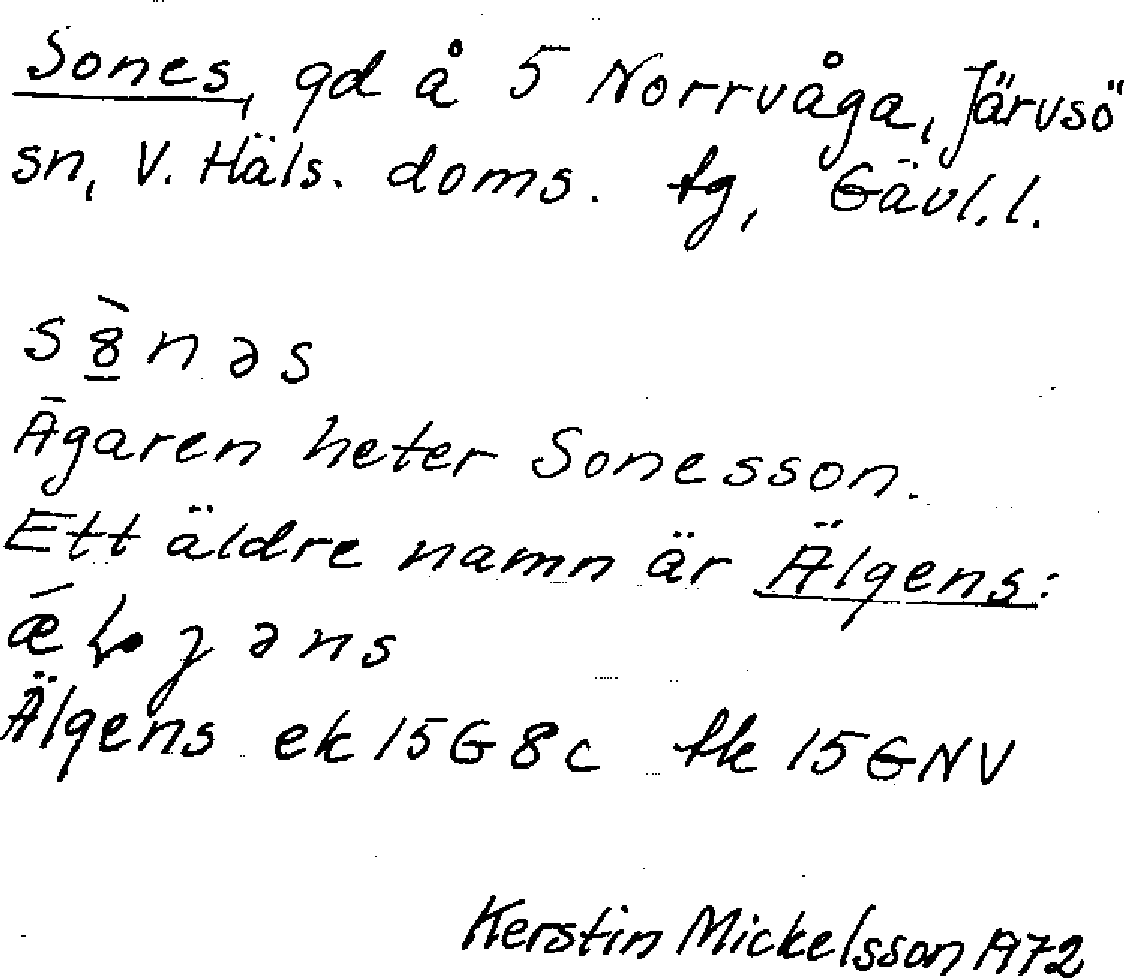 Sones, gd å 5 Norrvåga, Järvsö
sn, V. Häls. doms. tg, Gävl. l.
s8̲̀nəs
Ägaren heter Sonesson.
Ett äldre namn är Älgens:
Älgens ek 15G8c tk 15GNV
Kerstin Mickelsson 1972